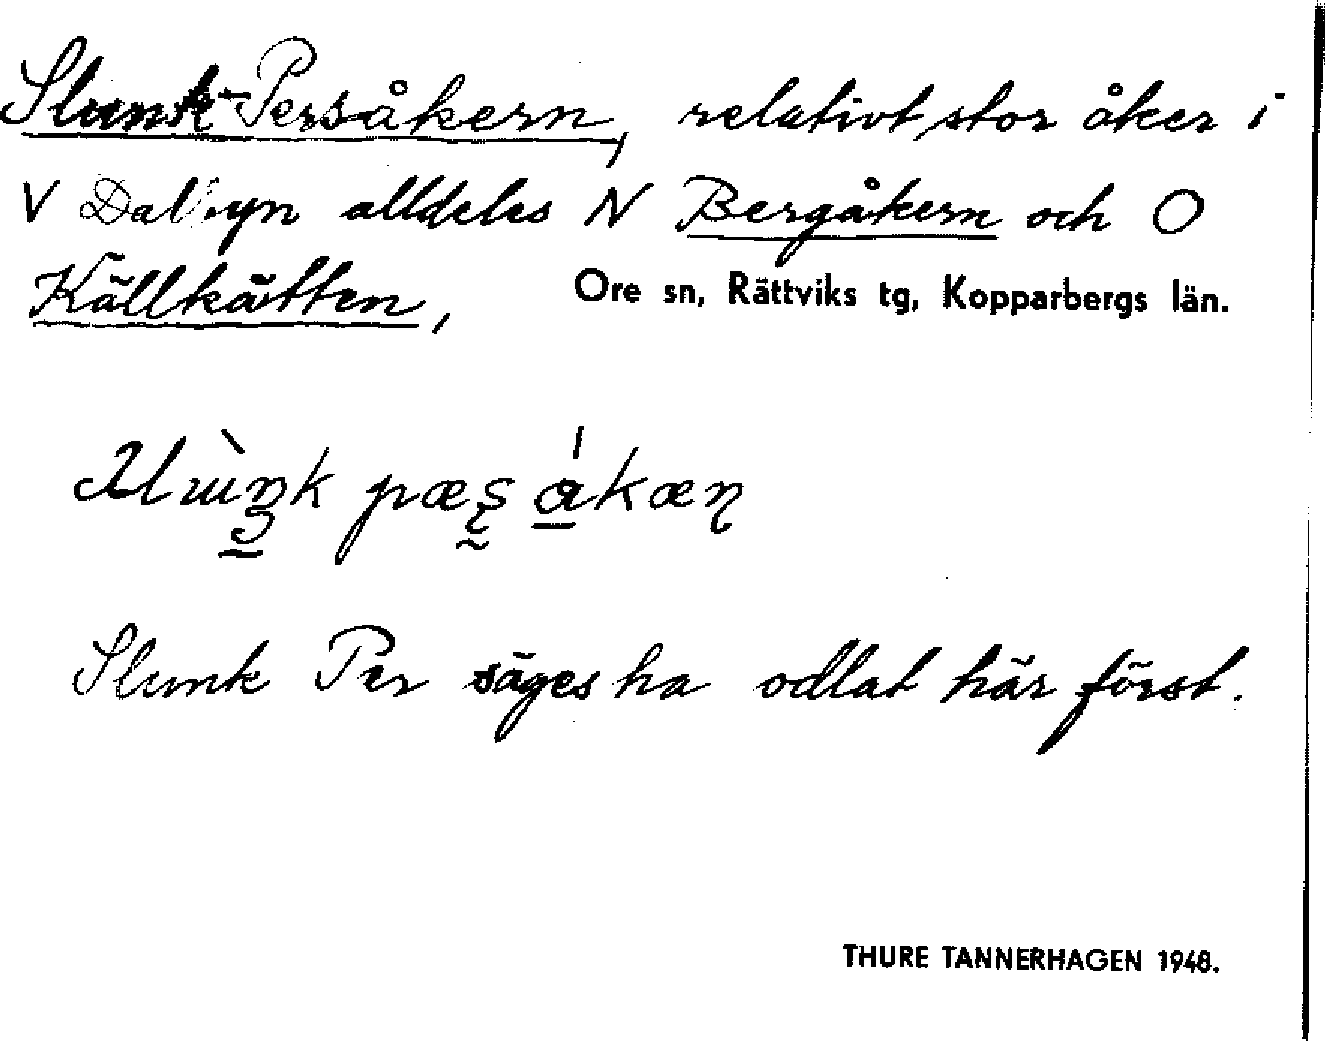 Slunk-Persåkern, relativt stor åker i
V Dalbyn alldeles N Bergåkern och O
Källkätten, Ore sn, Rättviks tg, Kopparbergs län.
Slunk Per säges ha odlat här först.
THURE TANNERHAGEN 1948.